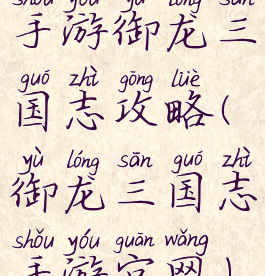 shǒu yóu yù lóng sān
手游御龙三
guó zhì gōng lüè
国志攻略(
yù lóng sān guó zhì
御龙三国志
shǒu yóu guān wǎng
手游官网)